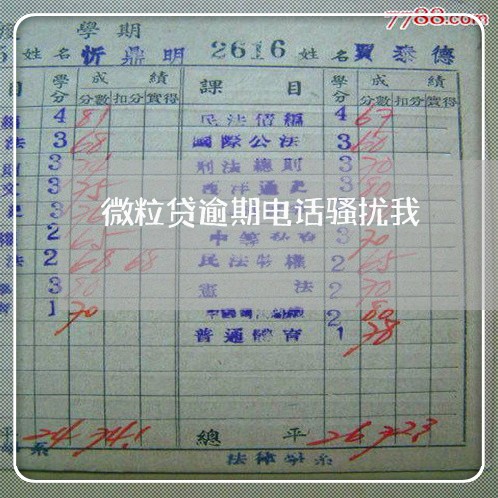 7788.com
學期
姓名 忻鼎明 2616 姓名 賈泰德
目 學分 成績 課目 學分 成績
分數 扣分 實得 分數 扣分 實得
4 81 民法債編 4 67
法 3 68 國際公法 3 60
3 刑法總則 3 70
3 75 西洋通史 3 80
微粒贷逾期电话骚扰我
2 65 3 70
法 2 68 68 民法物權 2 65
3 80 憲法 2 70
1 70 2 80
普通體育 1 78
平 24 74.1 總平 26 72.3
系 法律學系